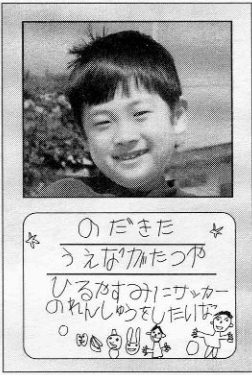 のだきた
うえながたつや
ひるやすみにサッカー
のれんしゅうをしたいな
。